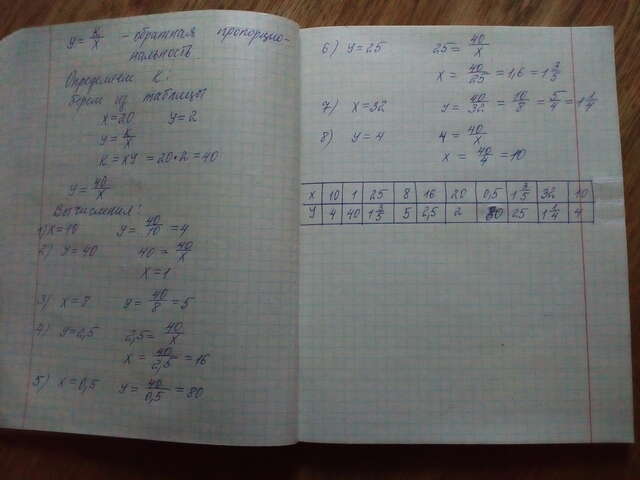 y = k/x - обратная пропорцио-
нальность
Определяем k:
берем из таблицы
x=20 y=2
y = k/x
k = xy = 20•2 = 40
y = 40/x
Вычисления:
1) x=10 y = 40/10 = 4
2) y=40 40 = 40/x
x=1
3) x=8 y = 40/8 = 5
4) y=2,5 2,5 = 40/x
x = 40/2,5 = 16
5) x=0,5 y = 40/0,5 = 80
6) y=25 25 = 40/x
x = 40/25 = 1,6 = 1 3/5
7) x=32 y = 40/32 = 10/8 = 5/4 = 1 1/4
8) y=4 4 = 40/x
x = 40/4 = 10
x 10 1 25 8 16 20 0,5 1 3/5 32 10
y 4 40 1 3/5 5 2,5 2 80 25 1 1/4 4